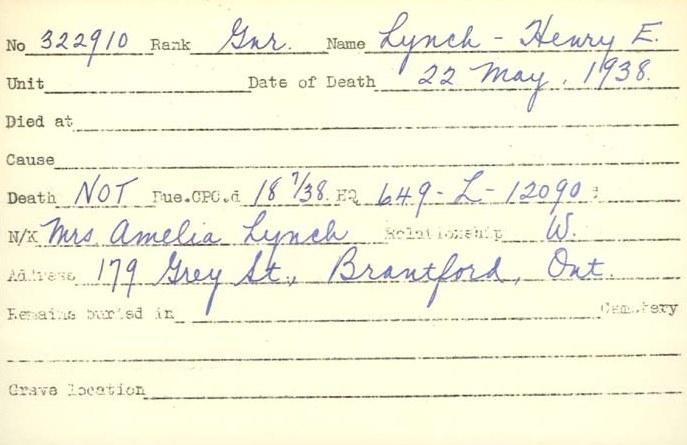 No 322910 Rank Gnr. Name Lynch - Henry E.
Unit Date of Death 22 May, 1938.
Died at
Cause
Death NOT Due.CPC.d 18 7/38. HQ 649-L-12090:
N/K Mrs Amelia Lynch Relationship W.
Address 179 Grey St., Brantford, Ont.
Remains buried in Cemetery
Grave location